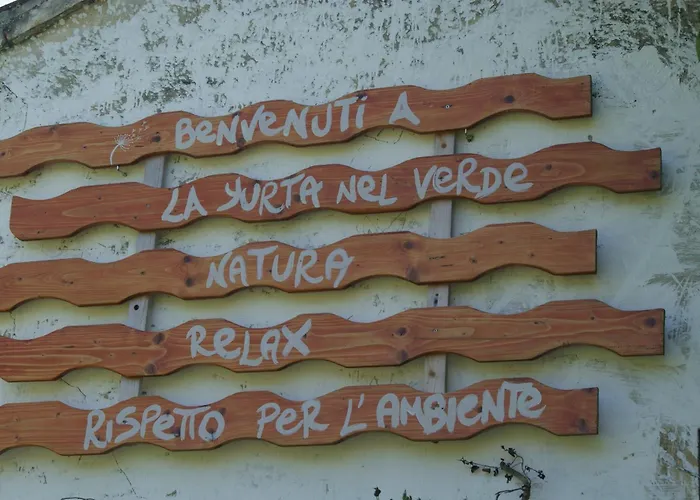 BENVENUTI A
LA YURTA NEL VERDE
NATURA
RELAX
RISPETTO PER L'AMBIENTE